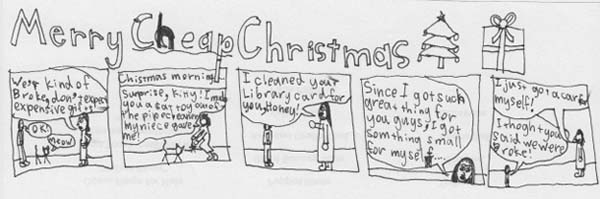 Merry Cheap Christmas
We'r kind of
Broke, don't expect
expensive gifts.
OK!
Meow!
Christmas morning
Surprise, Kiny! I made
you a cat toy out of
the pipe cleaners
my niece gave
me!
I cleaned your
Library card for
you, Honey!
Since I got such
great thing for
you guys, I got
somthing small
for myself...
I just got a car for
myself!
I thoght you
said we were
Broke!